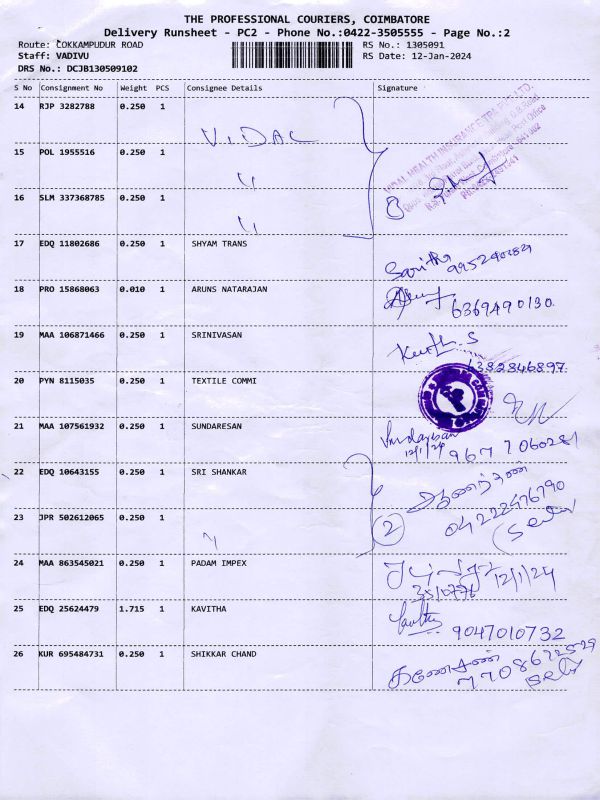 THE PROFESSIONAL COURIERS, COIMBATORE
Delivery Runsheet - PC2 - Phone No.:0422-3505555 - Page No.:2
Route: COKKAMPUDUR ROAD
RS No.: 1305091
Staff: VADIVU
RS Date: 12-Jan-2024
DRS No.: DCJB130509102
S No Consignment No Weight PCS Consignee Details Signature
14 RJP 3282788 0.250 1 VIDAL
15 POL 1955516 0.250 1 "
16 SLM 337368785 0.250 1 "
VIDAL HEALTH INSURANCE TPA PVT LTD.
17 EDQ 11802686 0.250 1 SHYAM TRANS
Saritha
18 PRO 15868063 0.010 1 ARUNS NATARAJAN
6369490130
19 MAA 106871466 0.250 1 SRINIVASAN
6382846897
20 PYN 8115035 0.250 1 TEXTILE COMMI
21 MAA 107561932 0.250 1 SUNDARESAN
Sundaresan
12/1/24 9677060281
22 EDQ 10643155 0.250 1 SRI SHANKAR
04222476790
23 JPR 502612065 0.250 1 "
2
24 MAA 863545021 0.250 1 PADAM IMPEX
12/1/24
25 EDQ 25624479 1.715 1 KAVITHA
9047010732
26 KUR 695484731 0.250 1 SHIKKAR CHAND
கணேசன்